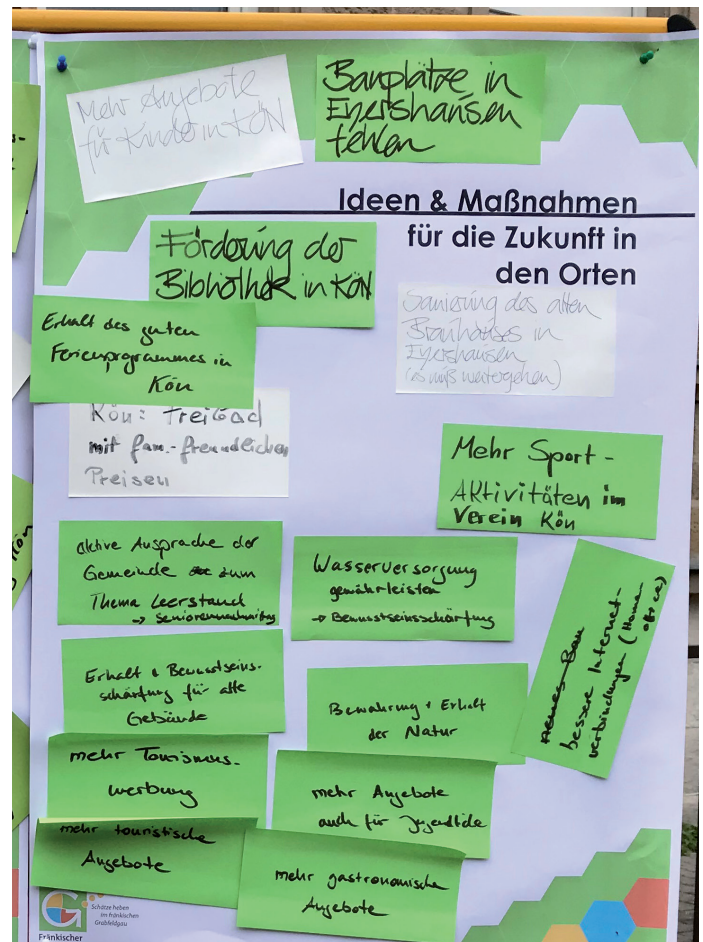 Mehr Angebote
für Kinder in KÖN
Bauplätze in
Eyershausen
fehlen
Ideen & Maßnahmen
für die Zukunft in
den Orten
Förderung der
Bibliothek in KÖN
Erhalt des guten
Ferienprogrammes in
Kön
Sanierung des alten
Brauhauses in
Eyershausen
(es muß weitergehen)
Kön: Freibad
mit fam.-freundlichen
Preisen
Mehr Sport-
Aktivitäten im
Verein Kön
aktive Ansprache der
Gemeinde zum
Thema Leerstand
Wasserversorgung
gewährleisten
→ Bewusstseinsschärfung
bessere Internet-
verbindungen (Home
office)
Erhalt + Bewusstseins-
schärfung für alte
Gebäude
Bewahrung + Erhalt
der Natur
mehr Tourismus-
werbung
mehr Angebote
auch für Jugendliche
mehr touristische
Angebote
mehr gastronomische
Angebote
Schätze heben
im fränkischen
Grabfeldgau
Fränkischer